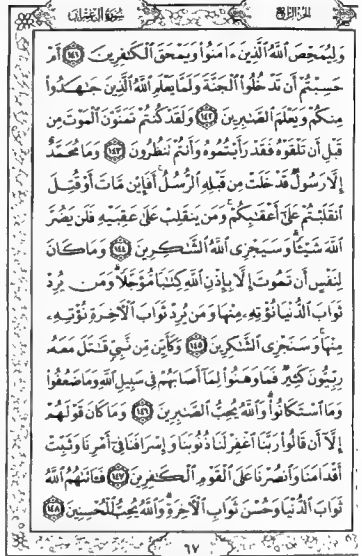 الجزء الرابع
سورة آل عمران
وَلِيُمَحِّصَ اللَّهُ الَّذِينَ ءَامَنُوا وَيَمْحَقَ الْكَٰفِرِينَ ﴿١٤١﴾ أَمْ
حَسِبْتُمْ أَن تَدْخُلُوا الْجَنَّةَ وَلَمَّا يَعْلَمِ اللَّهُ الَّذِينَ جَٰهَدُوا
مِنكُمْ وَيَعْلَمَ الصَّٰبِرِينَ ﴿١٤٢﴾ وَلَقَدْ كُنتُمْ تَمَنَّوْنَ الْمَوْتَ مِن
قَبْلِ أَن تَلْقَوْهُ فَقَدْ رَأَيْتُمُوهُ وَأَنتُمْ تَنظُرُونَ ﴿١٤٣﴾ وَمَا مُحَمَّدٌ
إِلَّا رَسُولٌ قَدْ خَلَتْ مِن قَبْلِهِ الرُّسُلُ أَفَإِين مَّاتَ أَوْ قُتِلَ
انقَلَبْتُمْ عَلَىٰ أَعْقَٰبِكُمْ وَمَن يَنقَلِبْ عَلَىٰ عَقِبَيْهِ فَلَن يَضُرَّ
اللَّهَ شَيْـًٔا وَسَيَجْزِى اللَّهُ الشَّٰكِرِينَ ﴿١٤٤﴾ وَمَا كَانَ
لِنَفْسٍ أَن تَمُوتَ إِلَّا بِإِذْنِ اللَّهِ كِتَٰبًا مُّؤَجَّلًا وَمَن يُرِدْ
ثَوَابَ الدُّنْيَا نُؤْتِهِۦ مِنْهَا وَمَن يُرِدْ ثَوَابَ الْأَخِرَةِ نُؤْتِهِۦ
مِنْهَا وَسَنَجْزِى الشَّٰكِرِينَ ﴿١٤٥﴾ وَكَأَيِّن مِّن نَّبِىٍّ قَٰتَلَ مَعَهُۥ
رِبِّيُّونَ كَثِيرٌ فَمَا وَهَنُوا لِمَا أَصَابَهُمْ فِى سَبِيلِ اللَّهِ وَمَا ضَعُفُوا
وَمَا اسْتَكَانُوا وَاللَّهُ يُحِبُّ الصَّٰبِرِينَ ﴿١٤٦﴾ وَمَا كَانَ قَوْلَهُمْ
إِلَّا أَن قَالُوا رَبَّنَا اغْفِرْ لَنَا ذُنُوبَنَا وَإِسْرَافَنَا فِى أَمْرِنَا وَثَبِّتْ
أَقْدَامَنَا وَانصُرْنَا عَلَى الْقَوْمِ الْكَٰفِرِينَ ﴿١٤٧﴾ فَـَٔاتَىٰهُمُ اللَّهُ
ثَوَابَ الدُّنْيَا وَحُسْنَ ثَوَابِ الْأَخِرَةِ وَاللَّهُ يُحِبُّ الْمُحْسِنِينَ ﴿١٤٨﴾
٦٧